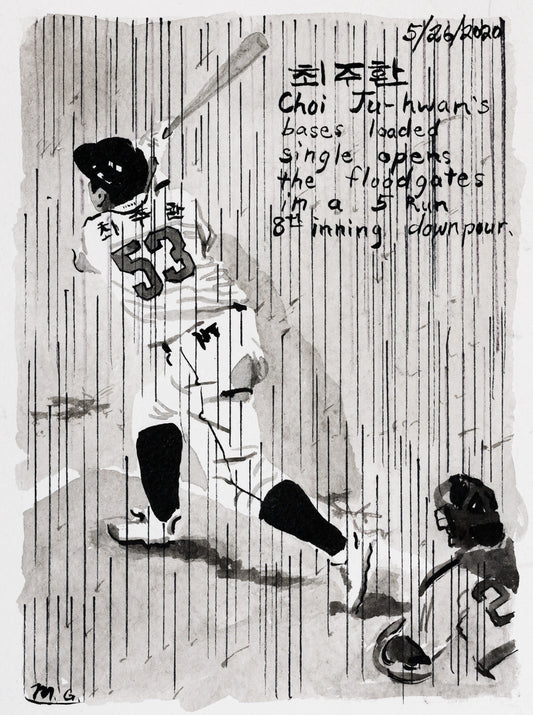 5/26/2020
최주환
Choi Ju-hwan's
bases loaded
single opens
the floodgates
in a 5 Run
8th inning downpour.
최주환
53
NF
2
M.G.